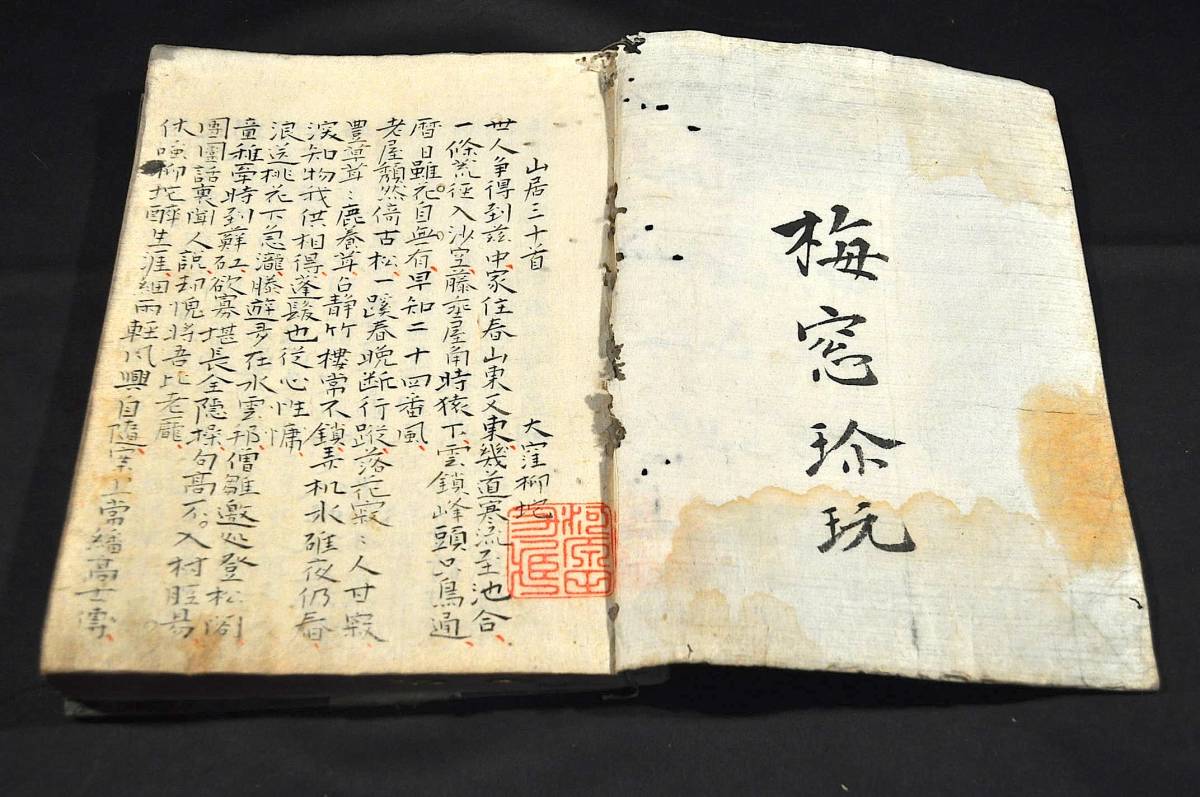 梅窓珎玩
山居三十首 大窪柳坨
世人争得到茲中家住春山東又東幾道寒流至池合
一條荒徑入沙空藤垂屋角時猿下雲鎖峰頭只鳥通
曆日雖花自無有早知二十四番風
老屋頽然倚古松一蹊春晩断行蹤落花寂〻人寸寂
豊草茸〻鹿養茸白静竹樓常不鎖弄机水碓夜仍舂
深知物我供相得蓬髪也従心性慵
浪送桃花下急瀧藤遊多在水雲邦僧雛邀処登松閣
童稚牽時到蘚矼欲寡堪長全隠操句高不入村腔
團圞話裏聞人説却愧將吾比老龐
柳坨醉生涯細雨輕風興自隨案上常繙高士傳